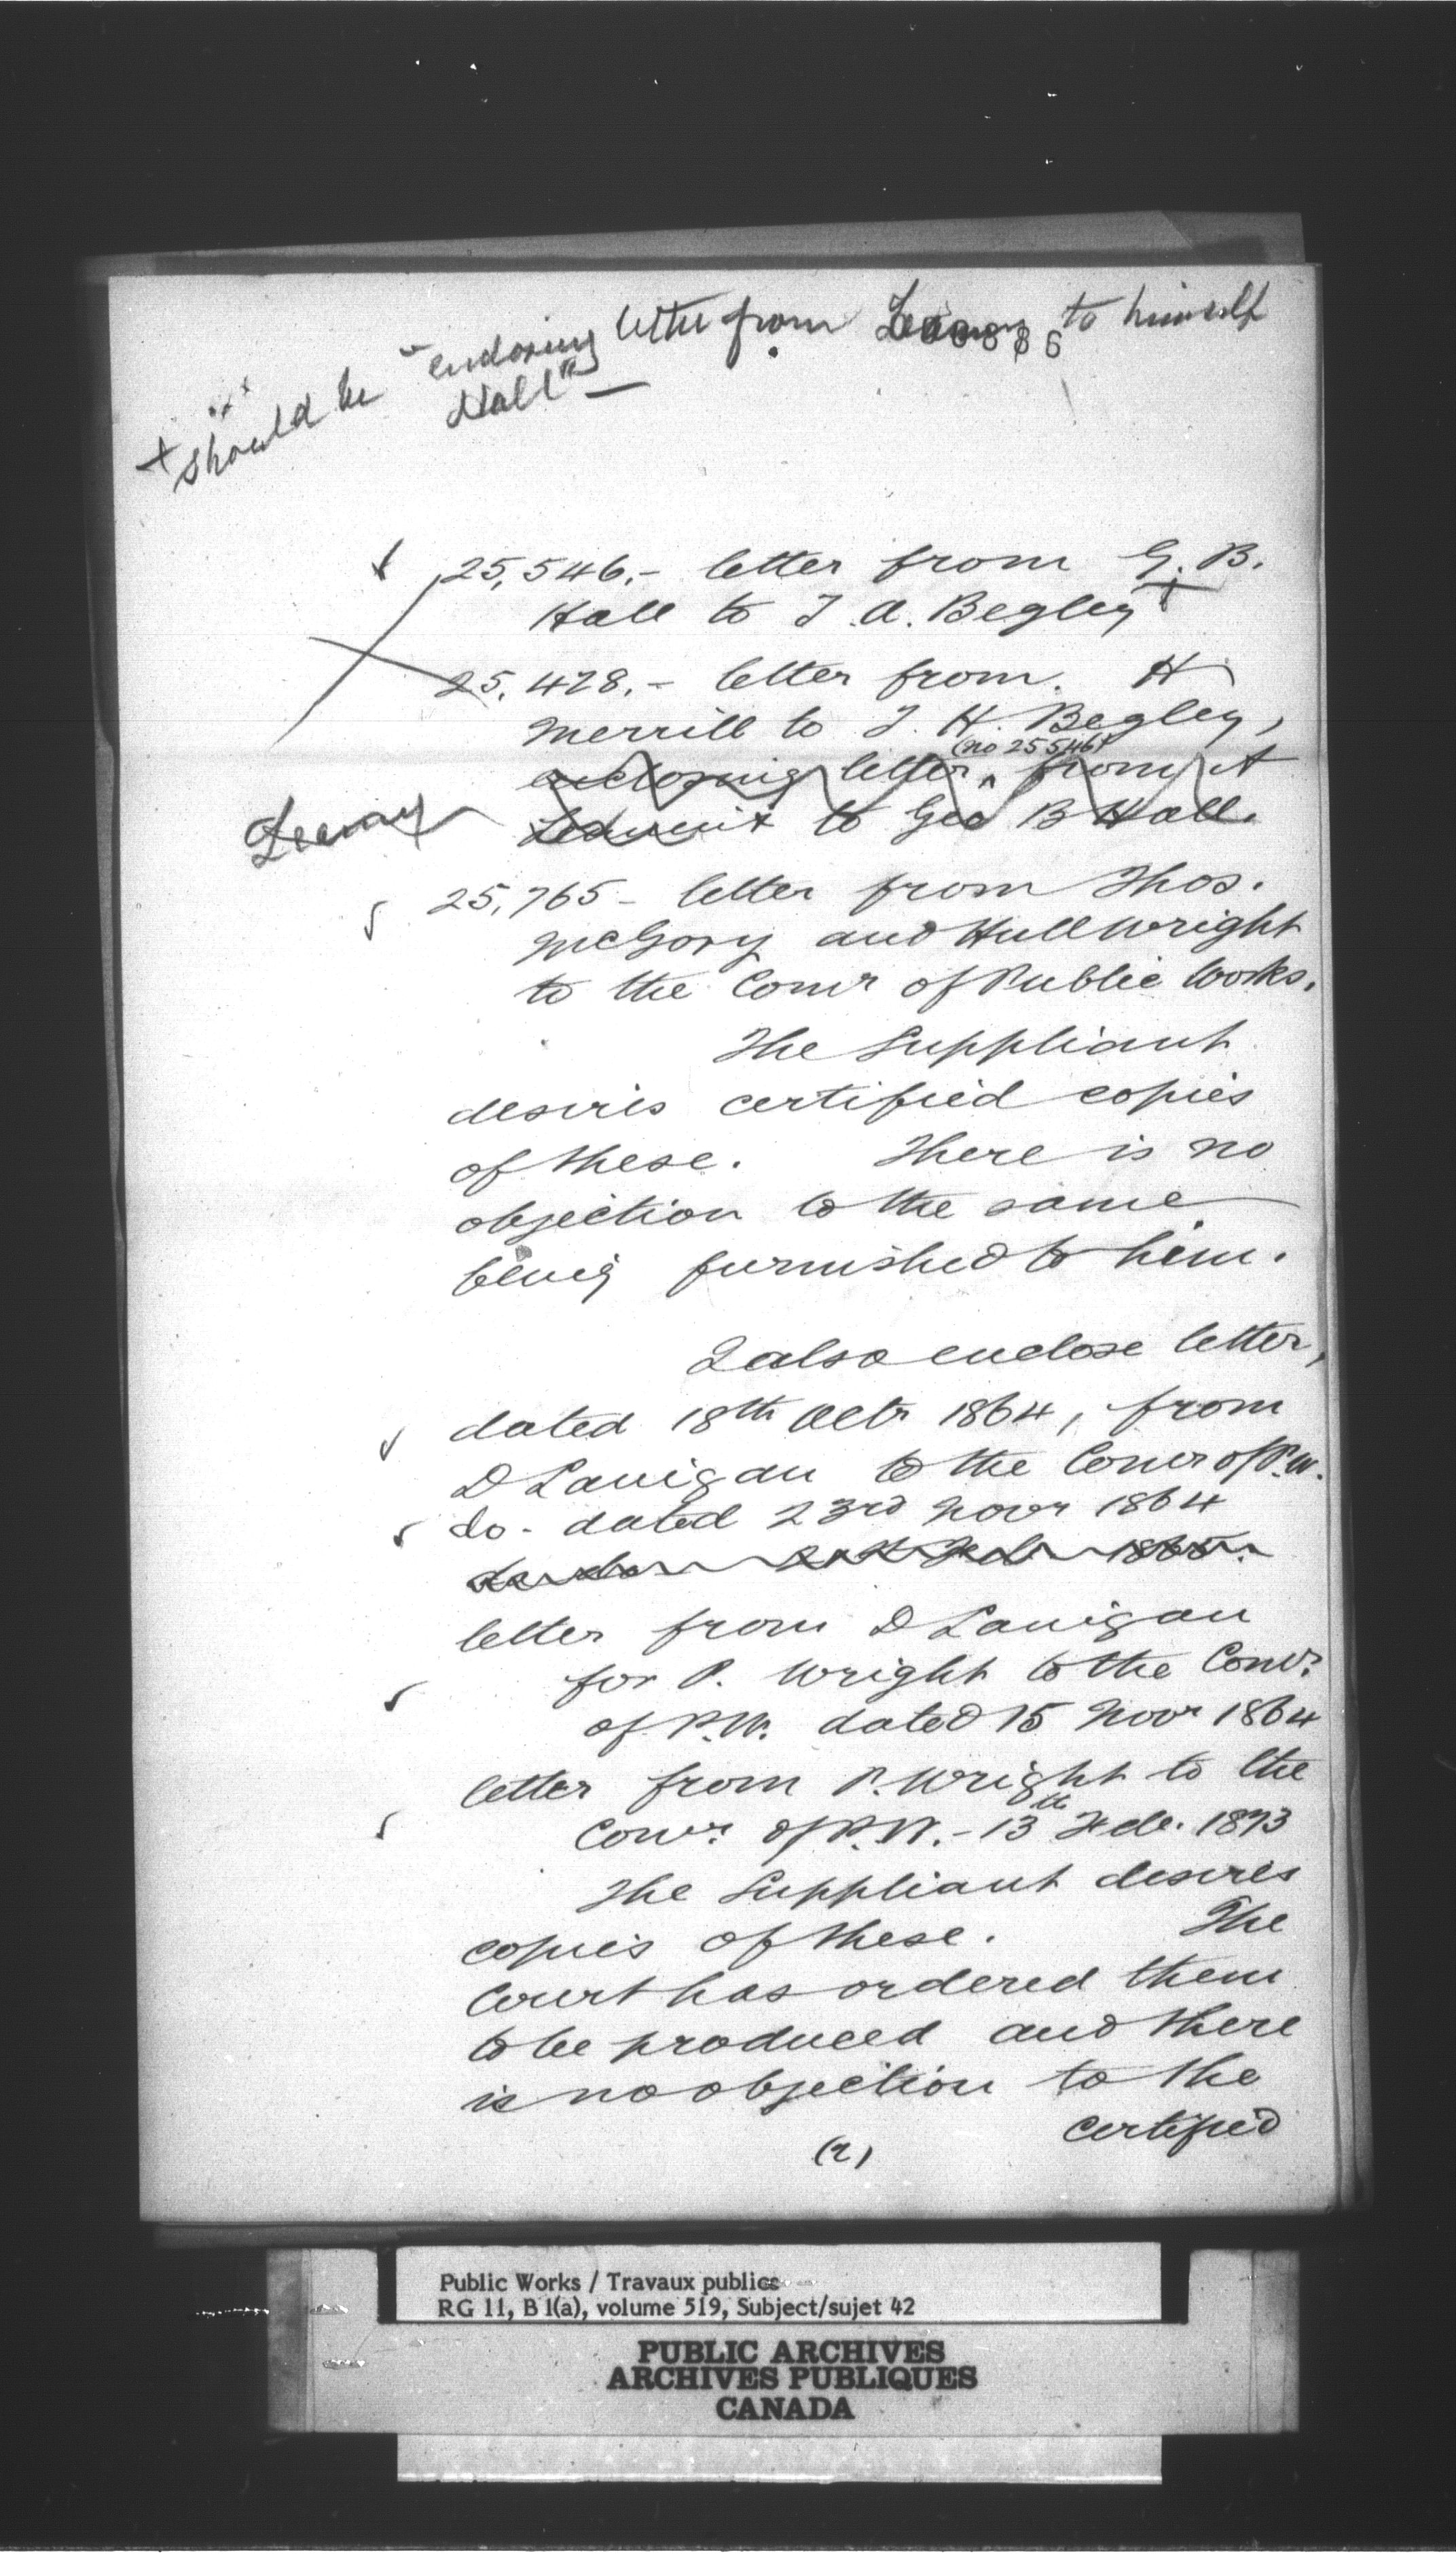 + should be "enclosing letter from Leamy to himself
Hall" —
✓ 25,546.- letter from G. B.
Hall to T. A. Begley +
25,428.- letter from. H
Merrill to T. H. Begley,
(no 25546)
enclosing letter ^ from A
to Geo B Hall.
Leamy
✓ 25,765 - letter from Thos.
McGory and Hull Wright
to the Comr of Public Works.
The Suppliant
desires certified copies
of these. There is no
objection to the same
being furnished to him.
I also enclose letter,
✓ dated 18th Octr 1864, from
D Lanigan to the Comr of P.W.
✓ do - dated 23rd Novr 1864
1865.
letter from D Lanigan
✓ for P. Wright to the Comr.
of P.W. dated 15 Novr 1864
letter from P. Wright to the
✓ Comr. of P.W. - 13th Feb. 1873
The Suppliant desires
copies of these. The
Court has ordered them
to be produced and there
is no objection to the
certified
(2)
Public Works / Travaux publics
RG 11, B 1(a), volume 519, Subject/sujet 42
PUBLIC ARCHIVES
ARCHIVES PUBLIQUES
CANADA